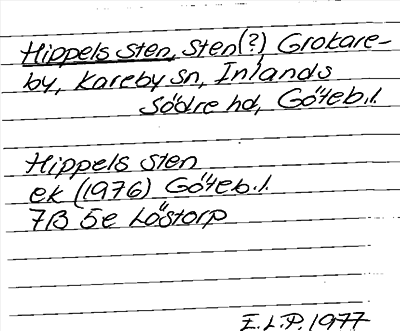 Hippels sten, sten(?) Grokare-
by, Kareby sn, Inlands
Södre hd, Göteb.l.
Hippels sten
ek (1976) Göteb.l.
7B 5e Löstorp
E.L.P. 1977